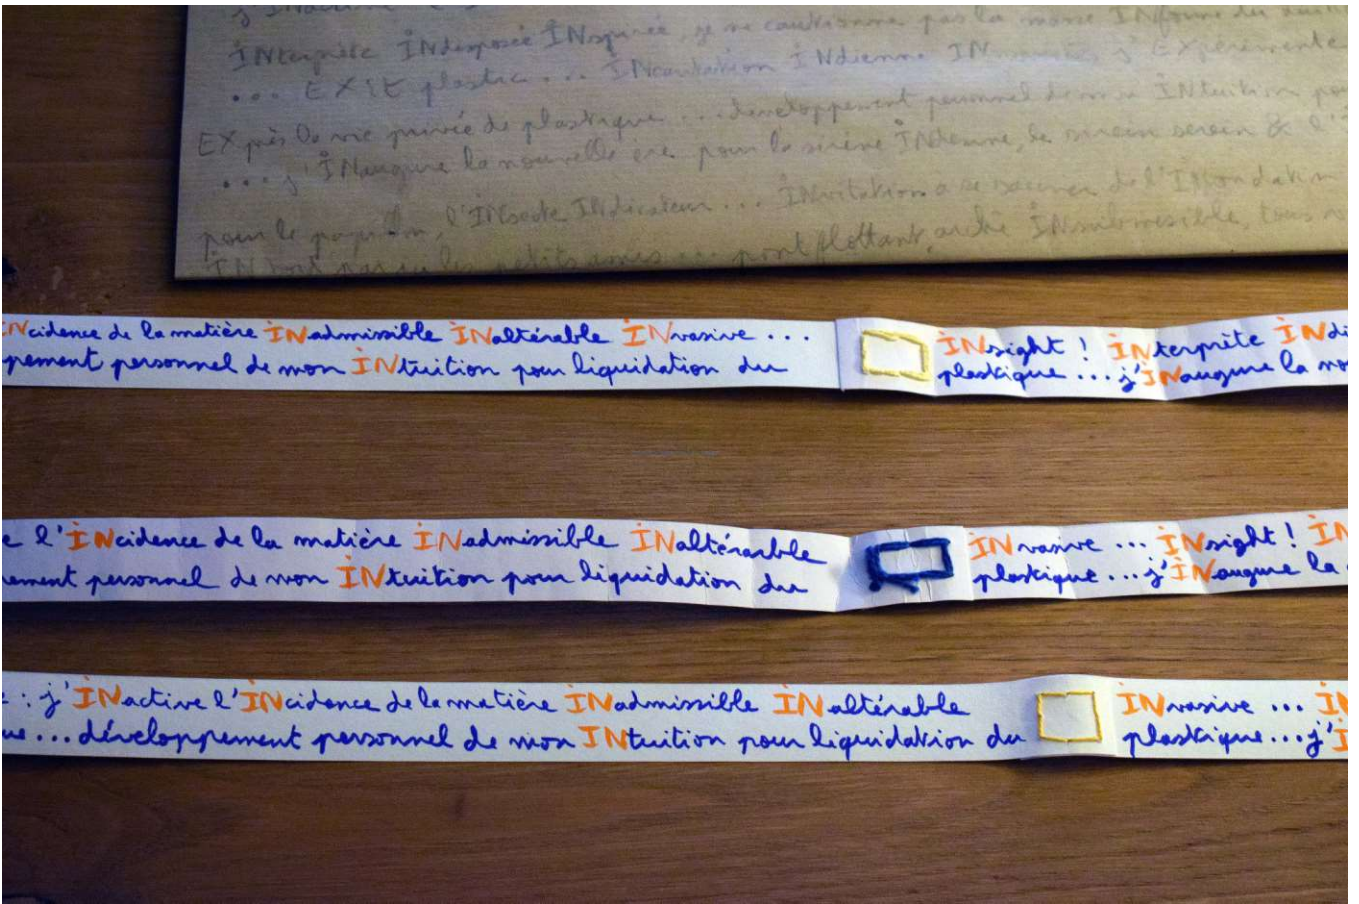 j'INactive
INterprète INdisposée INspirée, je ne cautionne pas la masse INforme du
... EXIT plastic ... INcantation INdienne j'EXpérimente
EXprès la vie privée de plastique ... développement personnel de mon INtuition pour
... j'INaugure la nouvelle ère pour la sirène INdienne, le serein & l'
pour le papillon, l'INsecte INdicateur ... INvitation à se sauver de l'INondation
les petits amis ... pont flottant, arche INsubmersible, tous
INcidence de la matière INadmissible INaltérable INvasive ... INsight ! INterprète INdi
pement personnel de mon INtuition pour liquidation du plastique ... j'INaugure la no
e l'INcidence de la matière INadmissible INaltérarble INvasive ... INsight ! IN
ement personnel de mon INtuition pour liquidation du plastique ... j'INaugure la
e : j'INactive l'INcidence de la matière INadmissible INaltérable INvasive ... IN
ue ... développement personnel de mon INtuition pour liquidation du plastique ... j'I